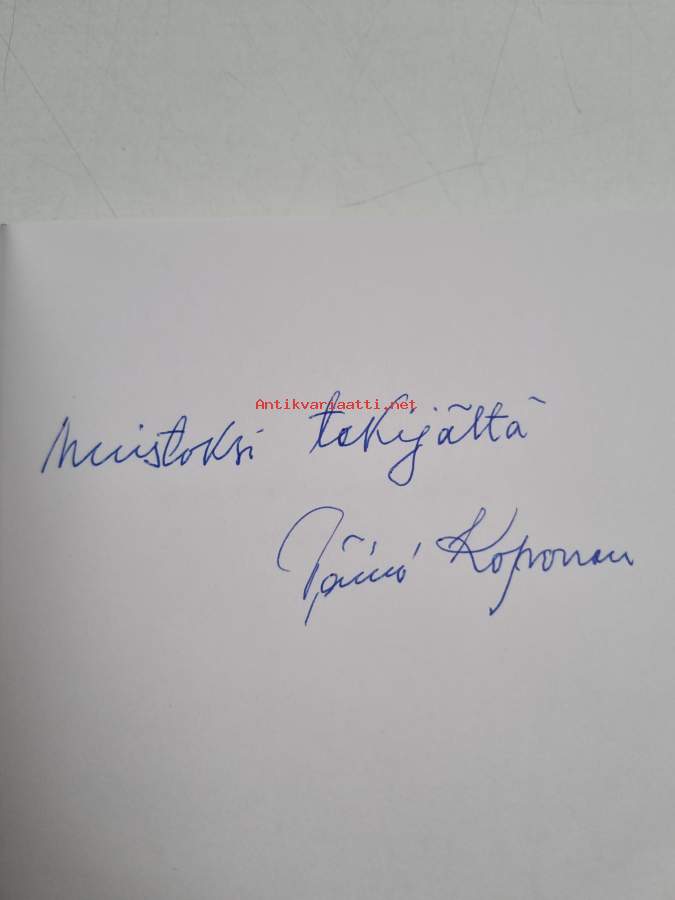 Antikvariaatti.net
Muistoksi tekijältä
Väinö Koponen